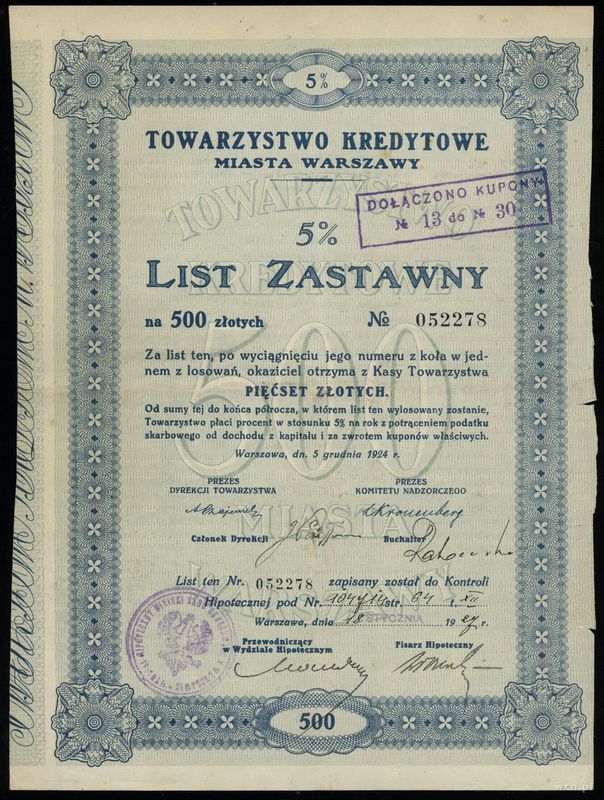 5%
TOWARZYSTWO KREDYTOWE
MIASTA WARSZAWY
DOŁĄCZONO KUPONY
№ 13 do № 30
5%
LIST ZASTAWNY
na 500 złotych № 052278
Za list ten, po wyciągnięciu jego numeru z koła w jed-
nem z losowań, okaziciel otrzyma z Kasy Towarzystwa
PIĘĆSET ZŁOTYCH.
Od sumy tej do końca półrocza, w którem list ten wylosowany zostanie,
Towarzystwo płaci procent w stosunku 5% na rok z potrąceniem podatku
skarbowego od dochodu z kapitału i za zwrotem kuponów właściwych.
Warszawa, dn. 5 grudnia 1924 r.
PREZES
DYREKCJI TOWARZYSTWA
PREZES
KOMITETU NADZORCZEGO
LKronenberg
Członek Dyrekcji
Buchalter
List ten Nr. 052278 zapisany został do Kontroli
Hipotecznej pod Nr. str. 64 t. XII
Warszawa, dnia 18 STYCZNIA 19 27 r.
Przewodniczący
w Wydziale Hipotecznym
Pisarz Hipoteczny
500
TOWARZYSTWO
KREDYTOWE
500
MIASTA
WARSZAWY
wcn.pl